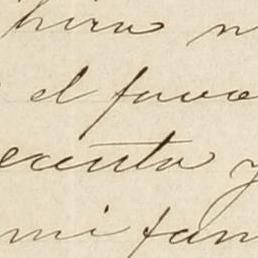 hiro n
el favo
ecuenta y
mi fam